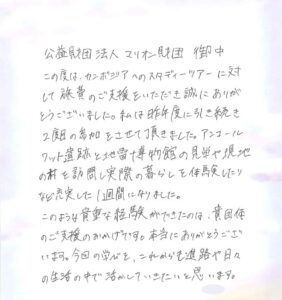 公益財団法人マリオン財団 御中
この度は、カンボジアへのスタディーツアーに対
して旅費のご支援をいただき誠にありが
とうございました。私は昨年度に引き続き
2回目の参加をさせて頂きました。アンコール
ワット遺跡と地雷博物館の見学や現地
の村を訪問し実際の暮らしを体験したり
など充実した1週間になりました。
このような貴重な経験ができたのは、貴団体
のご支援のおかげです。本当にありがとうござい
います。今回の学びを、これからも進路や日々
の生活の中で活かしていきたいと思います。